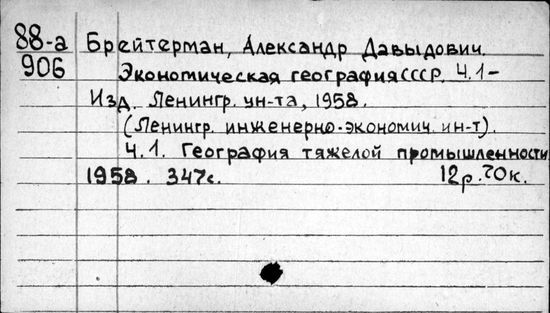 88-а Брейтерман, Александр Давыдович.
906 Экономическая география СССР. Ч.1-
Изд. Ленингр. ун-та, 1958.
(Ленингр. инженерно-экономич. ин-т).
Ч.1. География тяжелой промышленности
1958. 347с. 12р.70к.